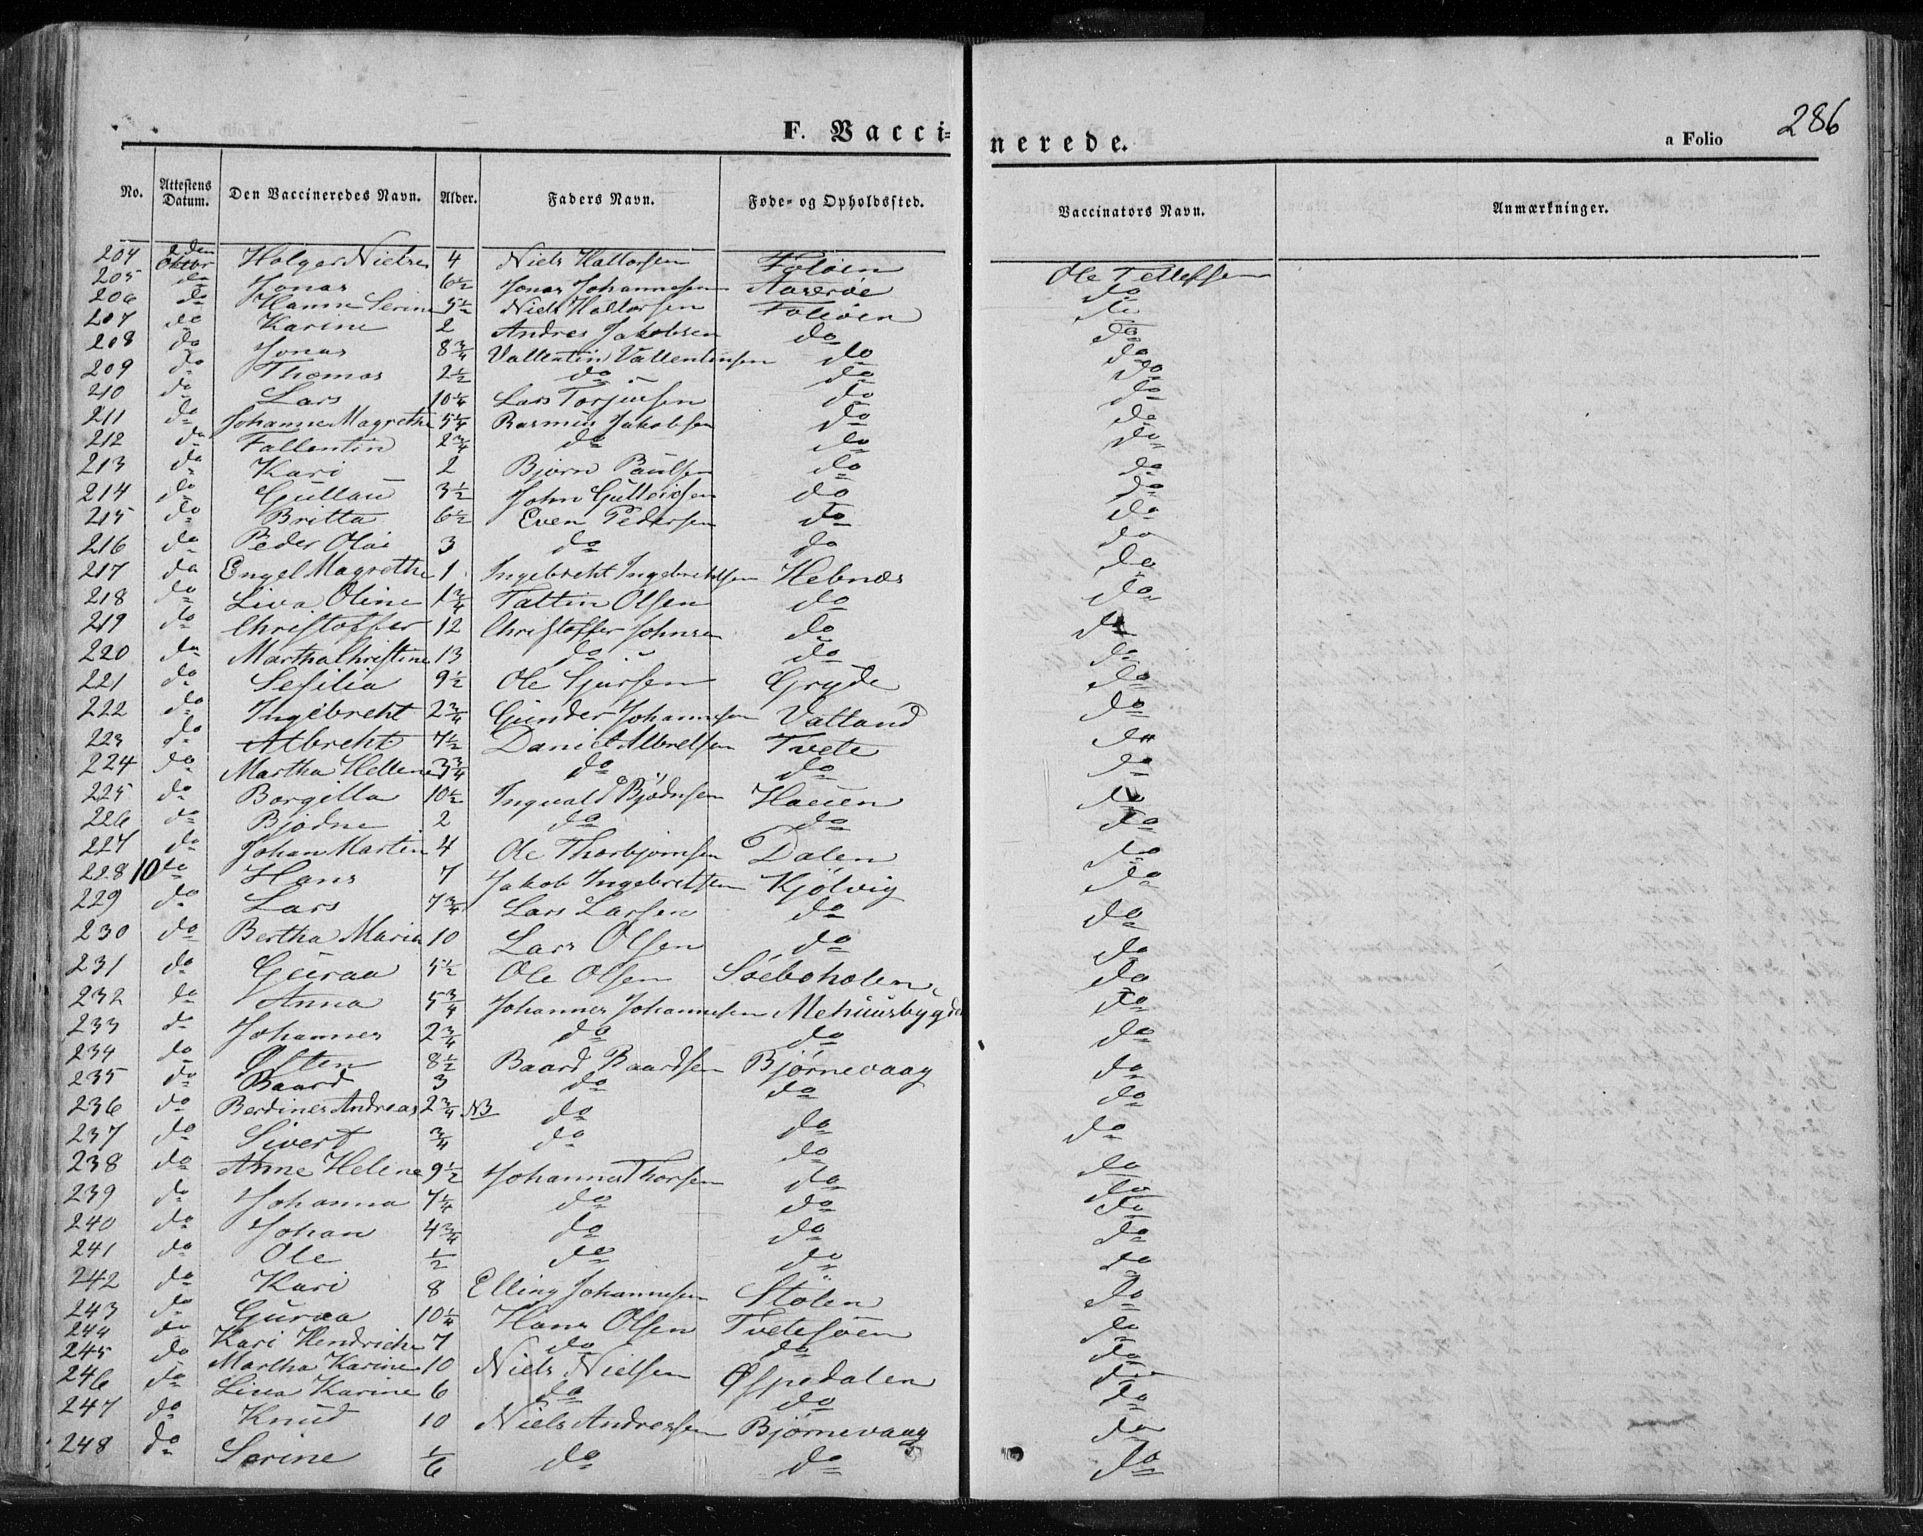 F. Vaccinerede.
a Folio 286
No. Attestens Datum. Den Vaccineredes Navn. Alder. Faders Navn. Føde- og Opholdssted. Vaccinators Navn. Anmærkninger.
204 2den Oktbr Holger Nielsen 4 Niels Haltorsen Foløen Ole Tellefsen
205 do Jonas 6½ Jonas Johannesen do
206 do Hanne Serine 5½ Niels Haltorsen Foløen do
207 do Karine 2 Andres Jakobsen do do
208 do Jonas 8¾ Vallentin Vallentinsen do do
209 do Thomas 2½ do do do
210 do Lars 10¼ Lars Torjusen do do
211 do Johanne Magrethe 5¼ Rasmus Jakobsen do do
212 do Fallentin 2¾ do do do
213 do Kari 2 Bjørn Paulsen do do
214 do 3½ John do do
215 do Britta 6½ Even Pedersen do do
216 do Peder Olai 3 do do do
217 do Engel Magrethe 1 Ingebreht Ingebrehtsen Hebnæs do
218 do Liva Oline 1¾ Taltin Olsen do do
219 do Christoffer 12 Christoffer Johnsen do do
220 do Martha Christine 13 do do do
221 do Sesilia 9½ Ole Sjursen Gryde do
222 do Ingebreht 2¾ Gunder Johannesen Vatland do
223 do Albreht 7½ Daniel Albretsen Tvete do
224 do Martha Hellene 3¾ do do do
225 do Borgella 10½ Ingvald Bjødnsen Hauen do
226 do Bjødne 2 do do do
227 do Johan Martin 4 Ole Thorbjørnsen Dalen do
228 10 do Hans 7 Jakob Ingebretsen Kjølvig do
229 do Lars 7¾ Lars Larsen do do
230 do Bertha Maria 10 Lars Olsen do do
231 do Guraa 5½ Ole Olsen Søeboholen do
232 do Anna 5¾ Johannes Johannesen Mehuusbygd do
233 do Johannes 2¾ do do do
234 do Østen 8½ Baard Baardsen Bjørnevaag do
235 do Baard 3 do do do
236 do Berdines Andreas 2¾ NB do do do
237 do Sivert ¾ do do do
238 do Anne Helene 9½ Johannes Thorsen do do
239 do Johanna 7¼ do do do
240 do Johan 4¾ do do do
241 do Ole ½ do do do
242 do Kari 8 Elling Johannesen Stølen do
243 do Guraa 10¼ Hans Olsen Tvetesøen do
244 do Kari Hendriche 7 do do do
245 do Martha Karine 10 Niels Nielsen Øspedalen do
246 do Liva Karine 6 do do do
247 do Knud 10 Niels Andressen Bjørnevaag do
248 do Serine 1/6 do do do